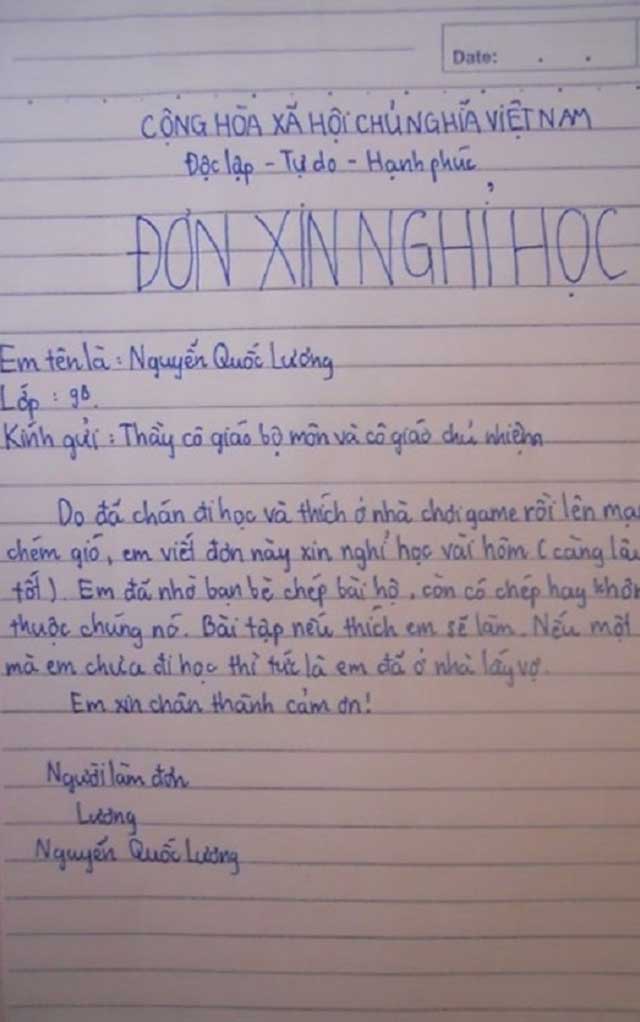 Date: . .
CỘNG HÒA XÃ HỘI CHỦ NGHĨA VIỆT NAM
Độc lập - Tự do - Hạnh phúc
ĐƠN XIN NGHỈ HỌC
Em tên là : Nguyễn Quốc Lương
Lớp : 9B.
Kính gửi : Thầy cô giáo bộ môn và cô giáo chủ nhiệm
Do đã chán đi học và thích ở nhà chơi game rồi lên mạ
chém gió, em viết đơn này xin nghỉ học vài hôm (càng lâu
tốt). Em đã nhờ bạn bè chép bài hộ, còn có chép hay khôn
thuộc chúng nó. Bài tập nếu thích em sẽ làm. Nếu một
mà em chưa đi học thì tức là em đã ở nhà lấy vợ.
Em xin chân thành cảm ơn!
Người làm đơn
Lương
Nguyễn Quốc Lương